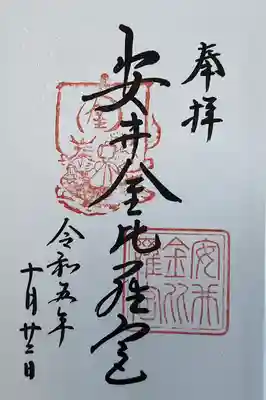 奉拝
安井金比羅宮
安井
金比
羅宮
令和五年
十月廿二日